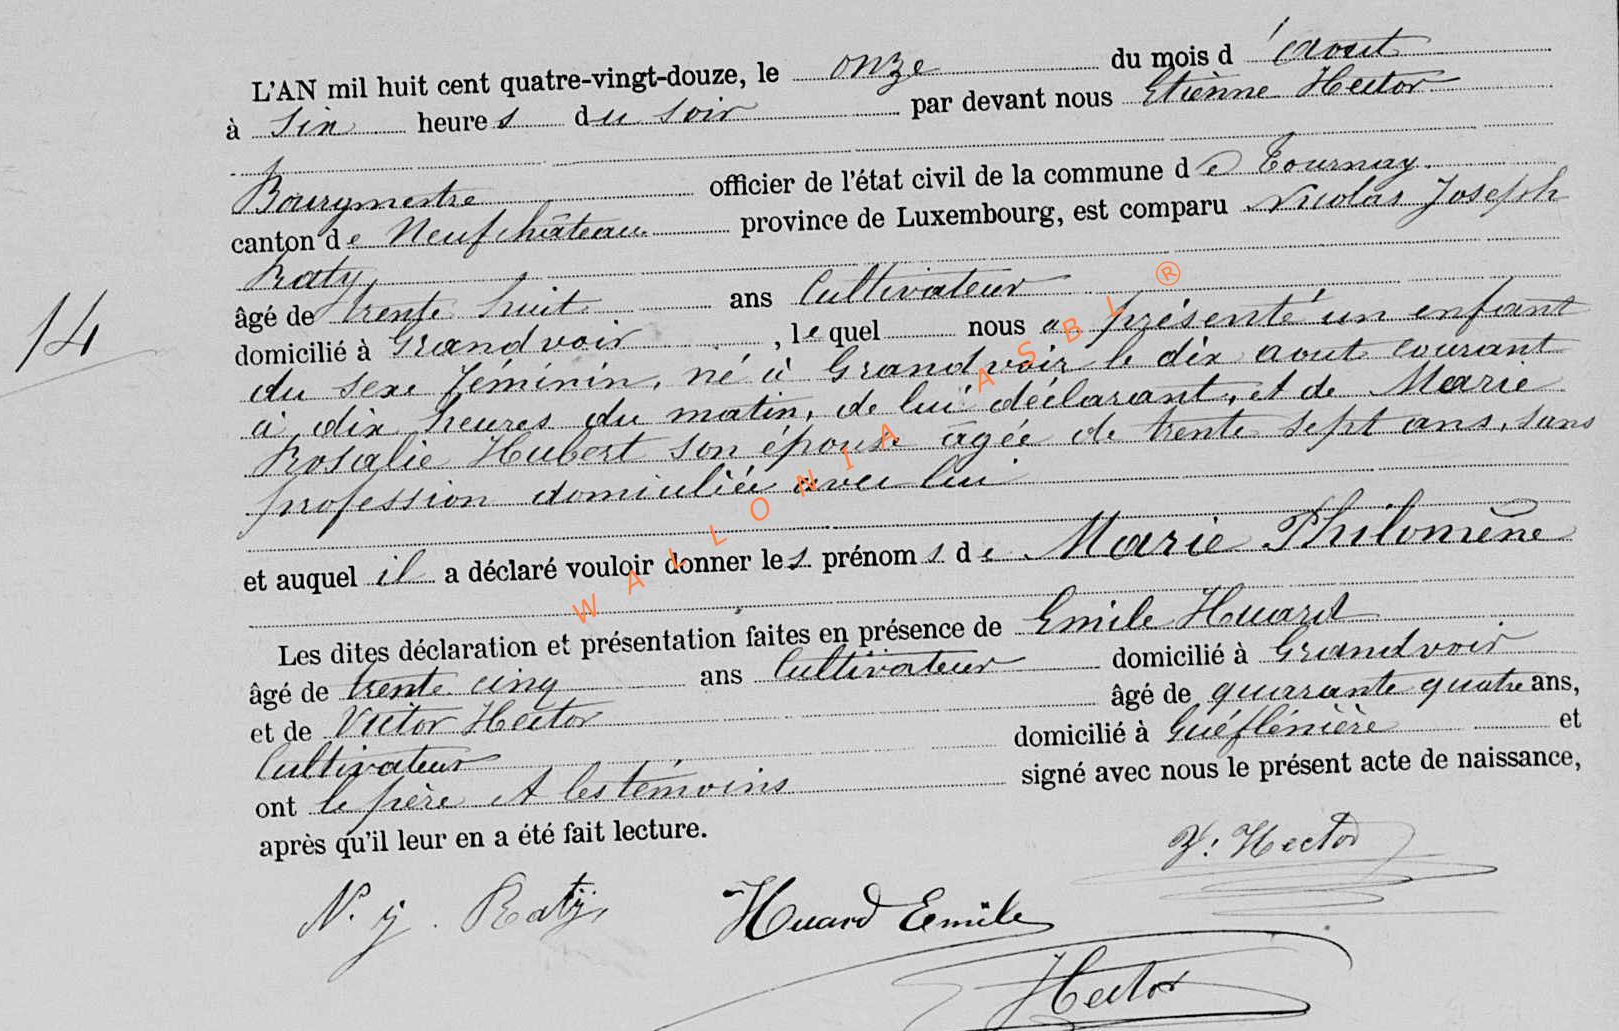 L'AN mil huit cent quatre-vingt-douze, le onze du mois d'aout
à six heures du soir par devant nous Etienne Hector
Bourgmestre officier de l'état civil de la commune de Tournay
canton de Neufchâteau province de Luxembourg, est comparu Nicolas Joseph
Raty
âgé de trente huit ans Cultivateur
domicilié à Grandvoir, lequel nous a présenté un enfant
14
du sexe féminin, né à Grandvoir le dix aout courant
à dix heures du matin, de lui déclarant, et de Marie
Rosalie Hubert son épouse âgée de trente sept ans, sans
profession domiciliée avec lui
et auquel il a déclaré vouloir donner les prénoms de Marie Philomène
Les dites déclaration et présentation faites en présence de Emile Huard
âgé de trente cinq ans Cultivateur domicilié à Grandvoir
et de Victor Hector âgé de quarante quatre ans,
Cultivateur domicilié à Gueflénière et
ont le père et les témoins signé avec nous le présent acte de naissance,
après qu'il leur en a été fait lecture.
V. Hector
N. j. Raty Huard Emile
Hector
WALLONIA ASBL ®